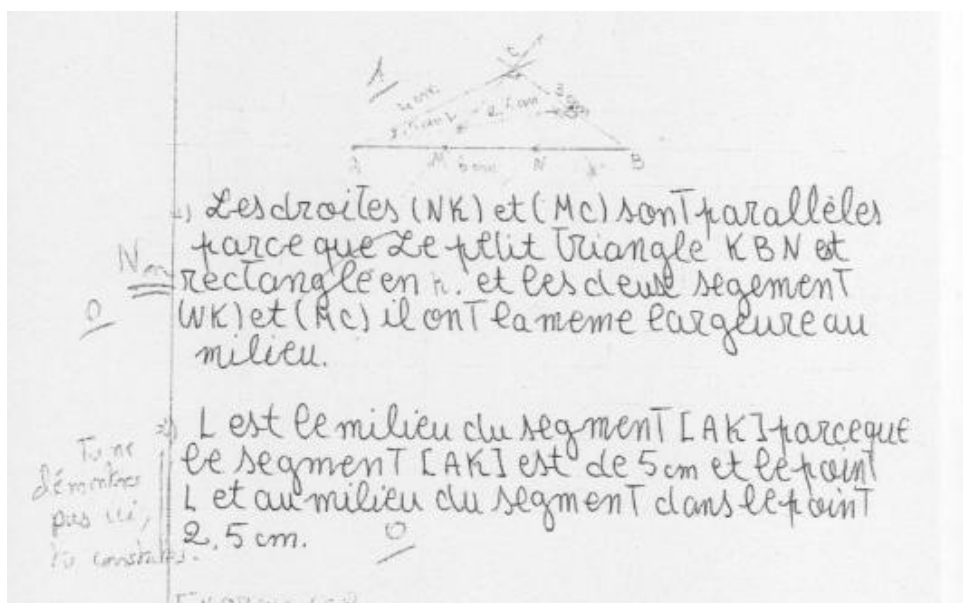 1
C
4 cm
3 cm
2,5 cm
2,5 cm
A M 6 cm N B
1) Les droites (NK) et (MC) sont parallèles
parce que Le ptlit triangle KBN et
rectangle en k. et les deuse segement
(NK) et (MC) il ont la meme largeure au
milieu.
Non
0
2) L est le milieu du segment [AK] parceque
le segment [AK] est de 5 cm et le point
L et au milieu du segment dans le point
2,5 cm.
0
Tu ne
démontres
pas ici,
tu constates.